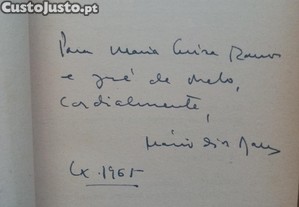 CustoJusto.pt
Para Maria Luiza Ramos
e José de Melo,
cordialmente,
Mário Dias Ramos
Lx. 1965